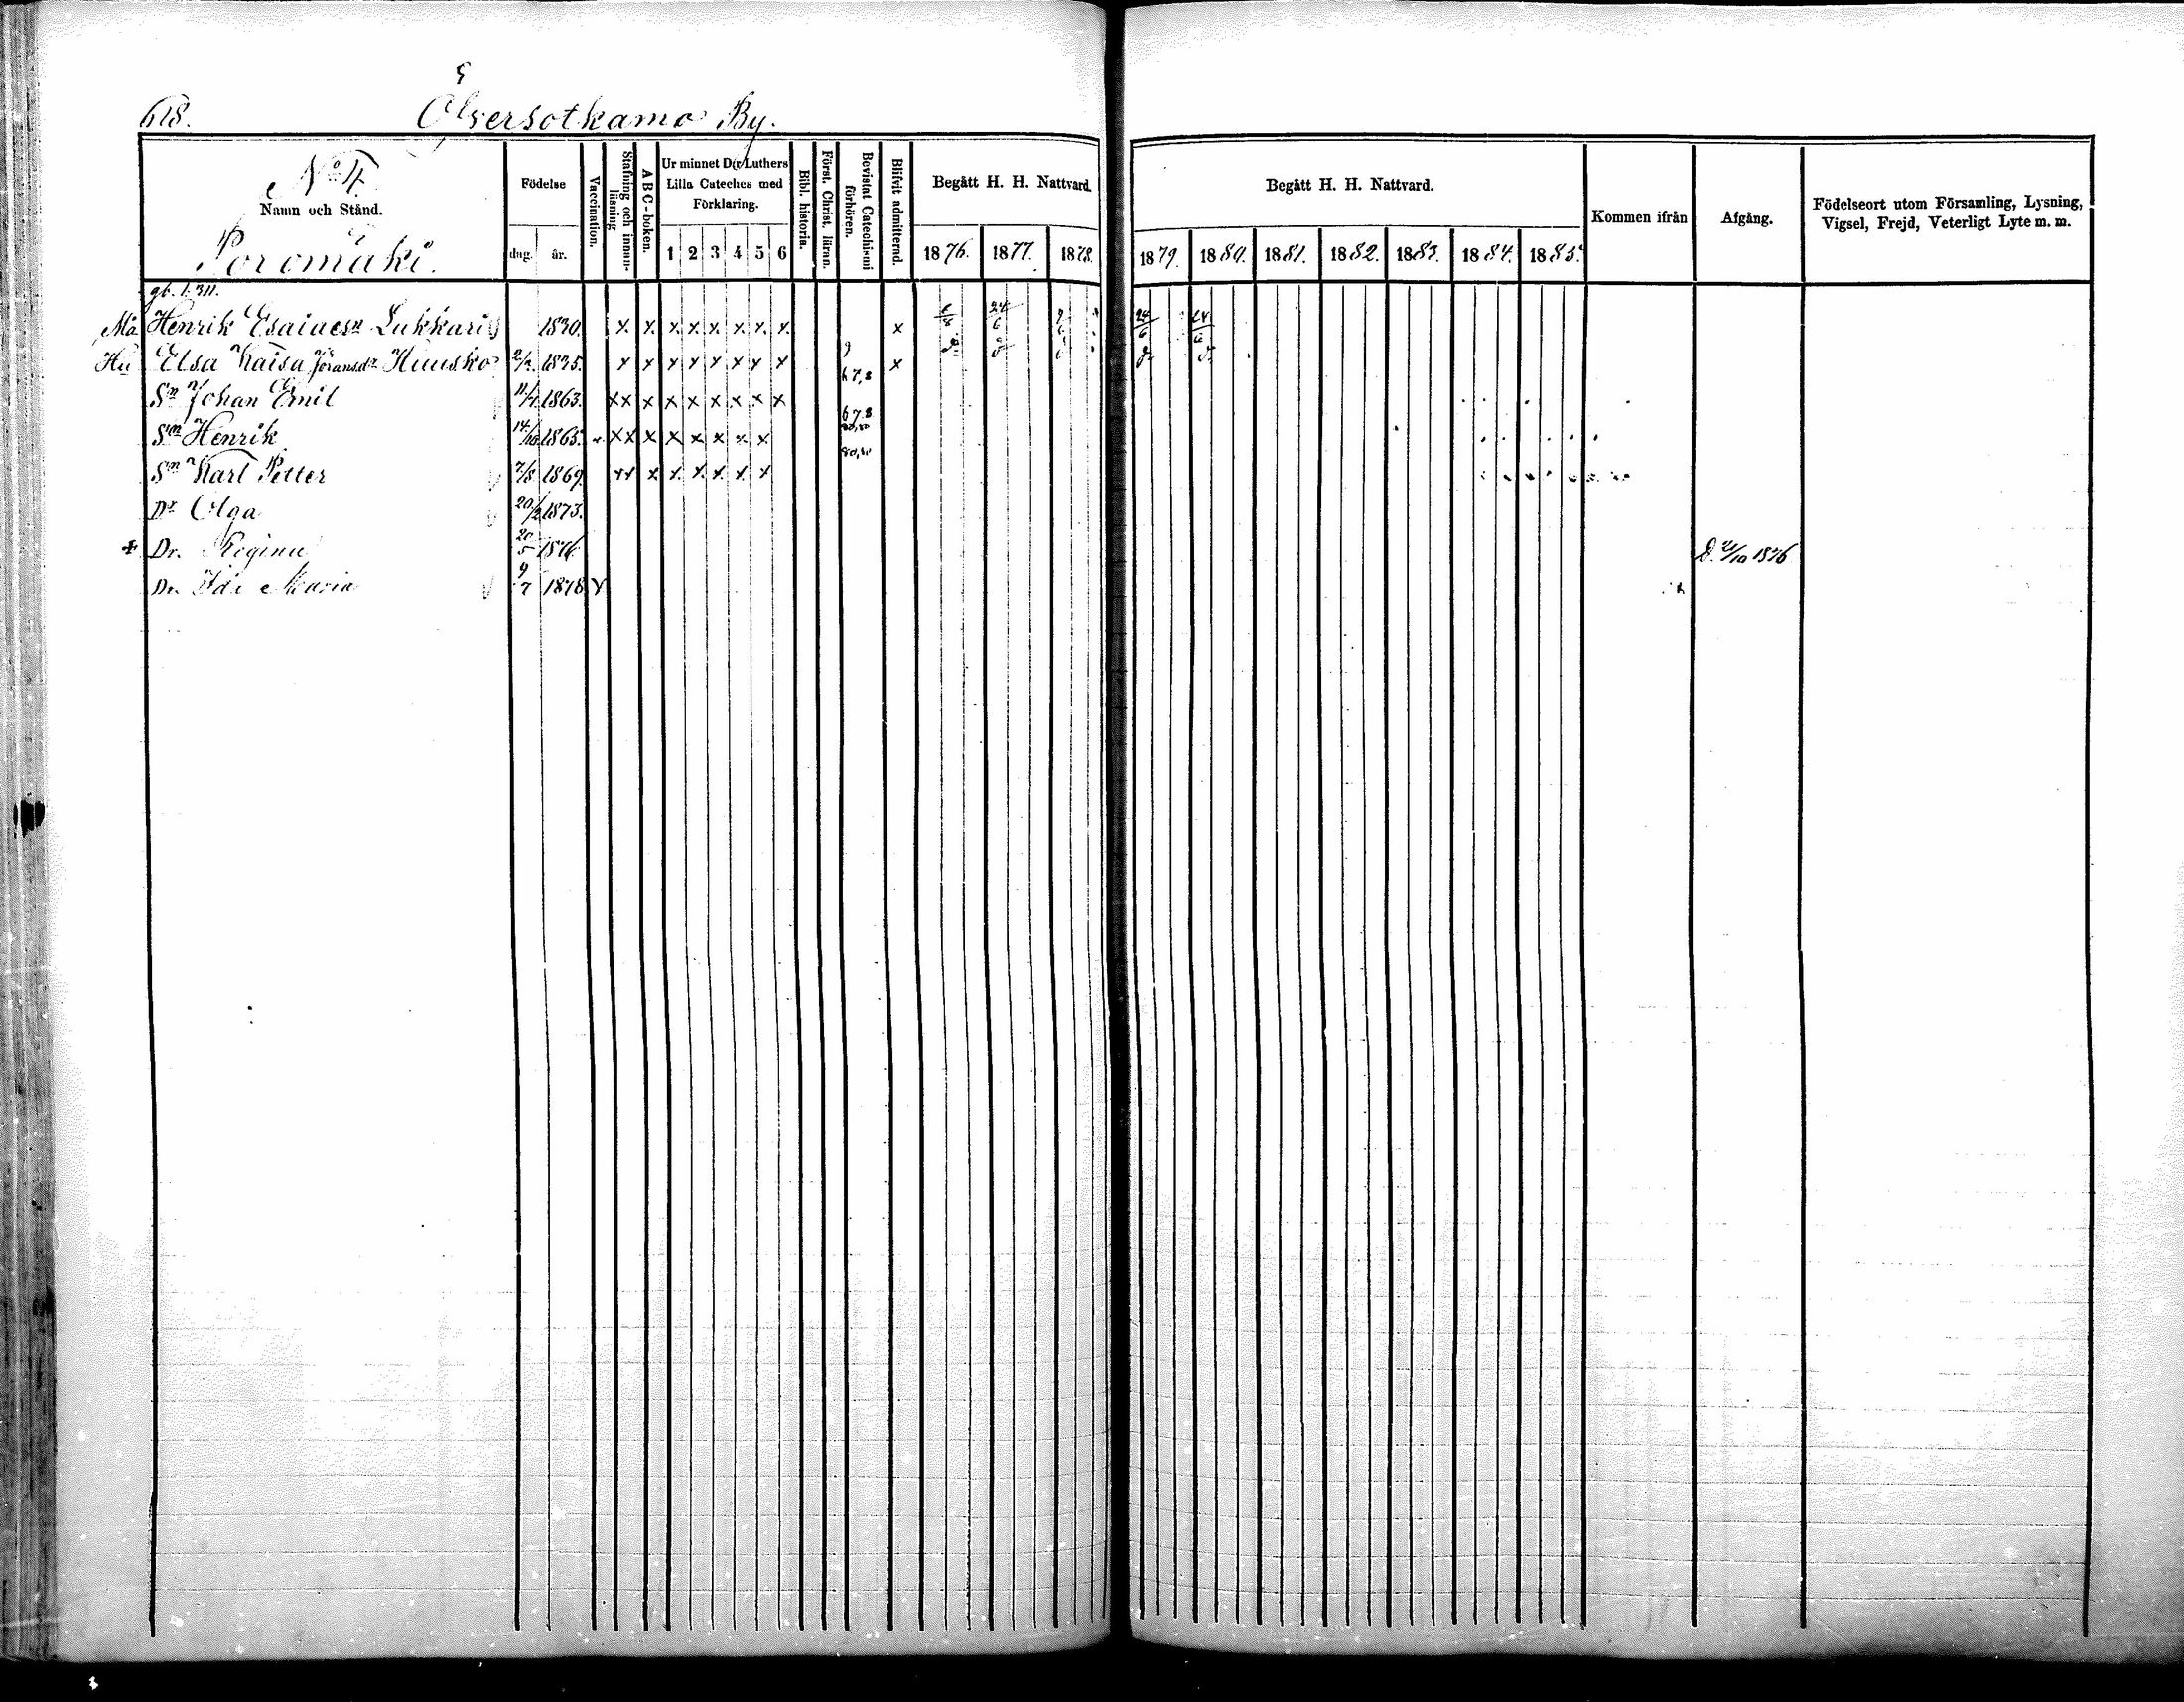 618. Öfversotkamo By.
No 4.
Namn och Stånd.
Poromäki.
Födelse
dag. år.
Vaccination.
Stafning och innan-läsning
A B C-boken.
Ur minnet D:r Luthers Lilla Cateches med Förklaring.
1 2 3 4 5 6
Bibl. historia.
Först. Christ. läran.
Bevistat Catechismi förhören.
Blifvit admitterad.
Begått H. H. Nattvard.
1876. 1877. 1878.
Begått H. H. Nattvard.
1879. 1880. 1881. 1882. 1883. 1884. 1885.
Kommen ifrån
Afgång.
Födelseort utom Församling, Lysning, Vigsel, Frejd, Veterligt Lyte m. m.
gb. 1.311.
Må Henrik Esaiaesn Lukkari 1830. x x x x x x x x x 24/6 24/6 24/6
Hu Elsa Kaisa Jöransdr Huusko 2/2. 1835. x x x x x x x x x
Sn Johan Emil 11/4 1863. xx x x x x x x x 67,8
Sn Henrik 14/10 1865. xx x x x x x x 678
Sn Karl Petter 7/8 1869. xx x x x x x x 80,81
Dr Olga 20/2 1873.
+ Dr. Regina 20/5 1876 D. 21/10 1876
Dr. Ida Maria 9/7 1878 v